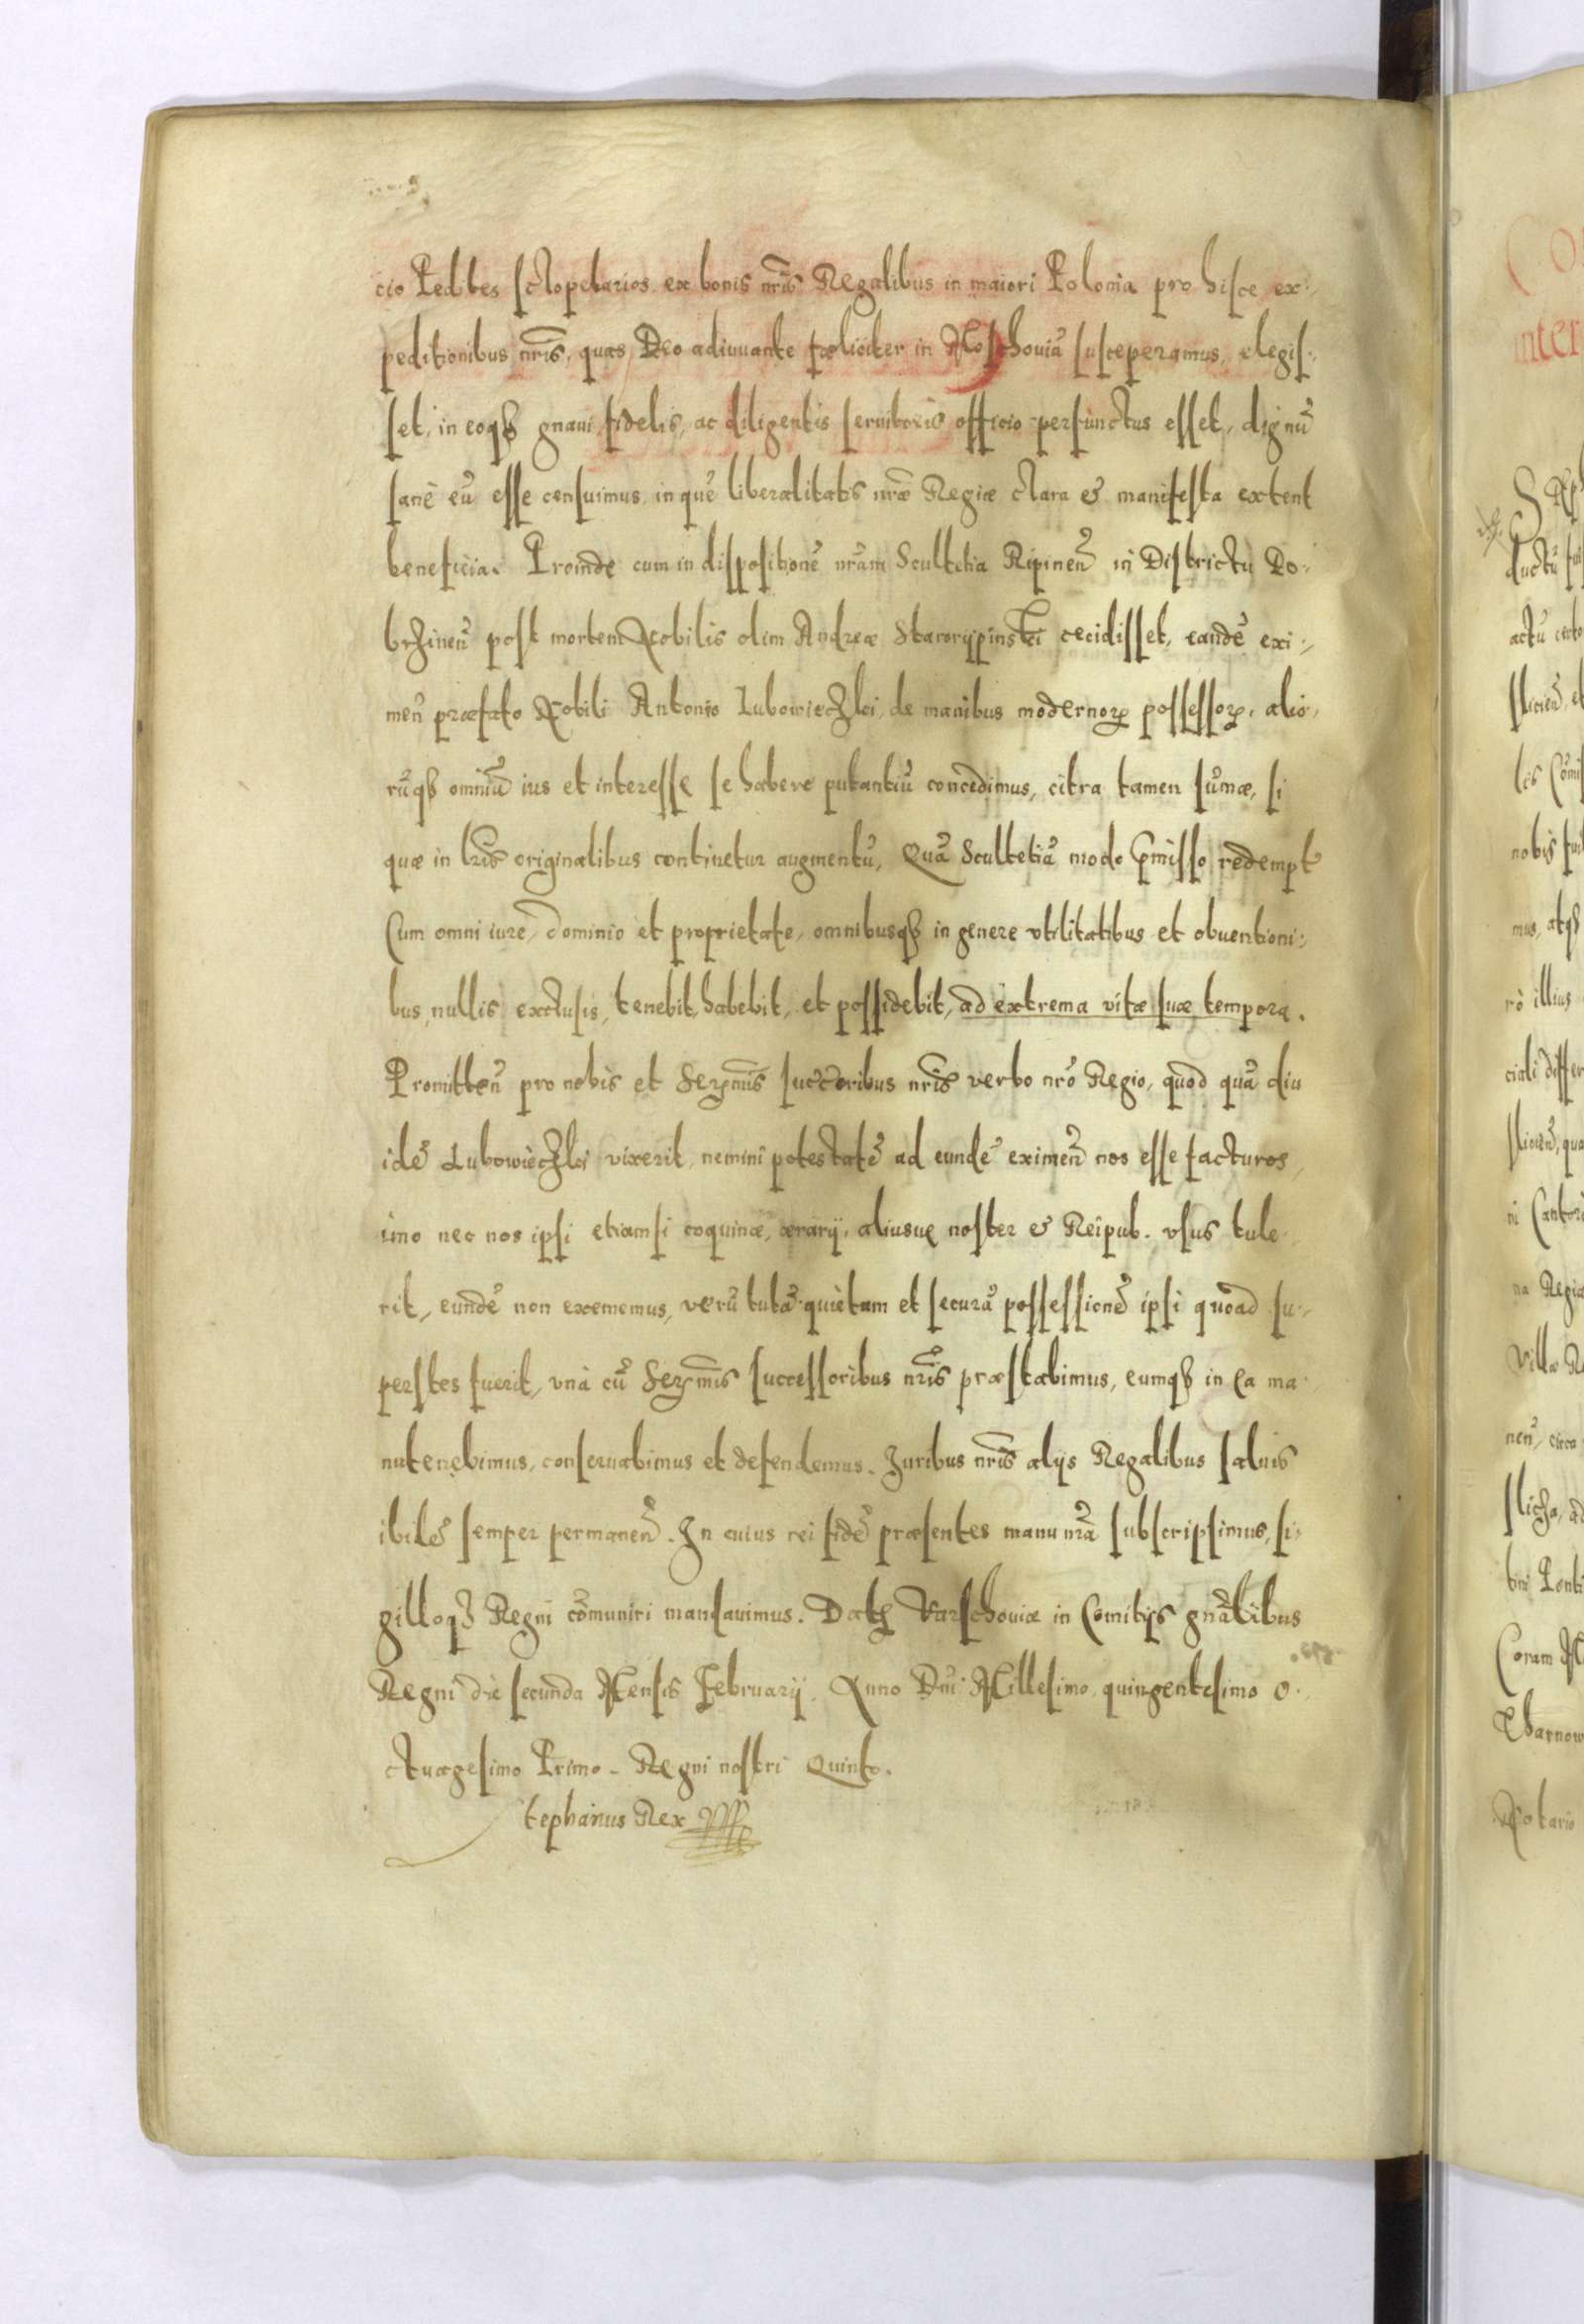 cio Pedites sclopetarios ex bonis nr̃is Regalibus in maiori Polonia pro hisce ex:
peditionibus nr̃is, quas Deo adiuuante fœliciter in Moschouiã susceperamus, elegis:
set, in eoqȝ gnaui, fidelis, ac diligentis seruitoris officio perfunctus esset, dignũ
sanè eũ esse censuimus, in quẽ liberalitatis nr̃æ Regiæ clara & manifesta extent
beneficia. Proinde cum in dispositionẽ nr̃am Scultetia Ripineñ in Districtu Do:
brzineñ post mortem Nobilis olim Andreæ Starorypinski cecidisset, eandẽ exi:
meñ præfato Nobili Antonio Lubowieczki, de manibus modernoꝝ possessoꝝ, alio:
rũqȝ omniũ ius et interesse se habere putantiũ concedimus, citra tamen sum̃æ, si
quæ in lr̃is originalibus continetur augmentũ, Quã Scultetiã modo p̃misso redempt
Cum omni iure, dominio et proprietate, omnibusqȝ in genere vtilitatibus et obuentioni:
bus, nullis exclusis, tenebit, habebit, et possidebit, ad extrema vitæ suæ tempora.
Promitteñ pro nobis et Serm̃is succ̃oribus nr̃is verbo nr̃o Regio, quod quã diu
idẽ Lubowieczki vixerit, nemini potestatẽ ad eundẽ eximeñ nos esse facturos,
imo nec nos ipsi etiamsi coquinæ, ærarij, aliusuę noster & Reipub. vsus tule:
rit, eundẽ non exememus, verũ tutã quietam et securã possessionẽ ipsi quoad su:
perstes fuerit, vnà cũ Serm̃is successoribus nr̃is præstabimus, eumqȝ in ea ma:
nutenebimus, conseruabimus et defendemus. Juribus nr̃is alijs Regalibus saluis
ibidẽ semper permaneñ. In cuius rei fidẽ præsentes manu nr̃a subscripsimus, si:
gilloqȝ Regni com̃uniri mandauimus. Datꝫ Varschouiæ in Comitijs gn̄alibus
Regni die secunda Mensis February. Anno Dñi Millesimo quingentesimo o:
ctuagesimo Primo. Regni nostri Quinto.
tephanus Rex